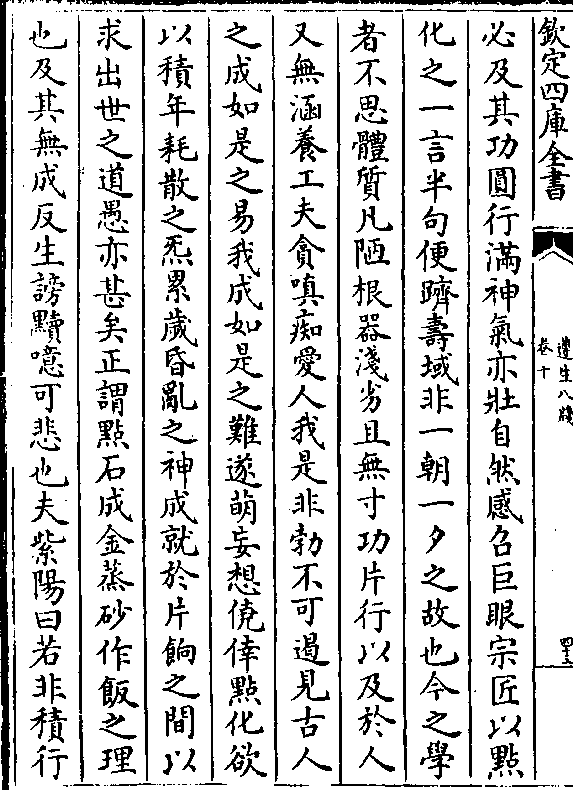 欽定四庫全書
遵生八牋
卷十
四十三
必及其功圓行滿神氣亦壯自然感召巨眼宗匠以點
化之一言半句便躋壽域非一朝一夕之故也今之學
者不思體質凡陋根器淺劣且無寸功片行以及於人
又無涵養工夫貪嗔痴愛人我是非勃不可遏見古人
之成如是之易我成如是之難遂萌妄想僥倖點化欲
以積年耗散之炁累歲昏亂之神成就於片餉之間以
求出世之道愚亦甚矣正謂點石成金蒸砂作飯之理
也及其無成反生謗黷噫可悲也夫紫陽曰若非積行